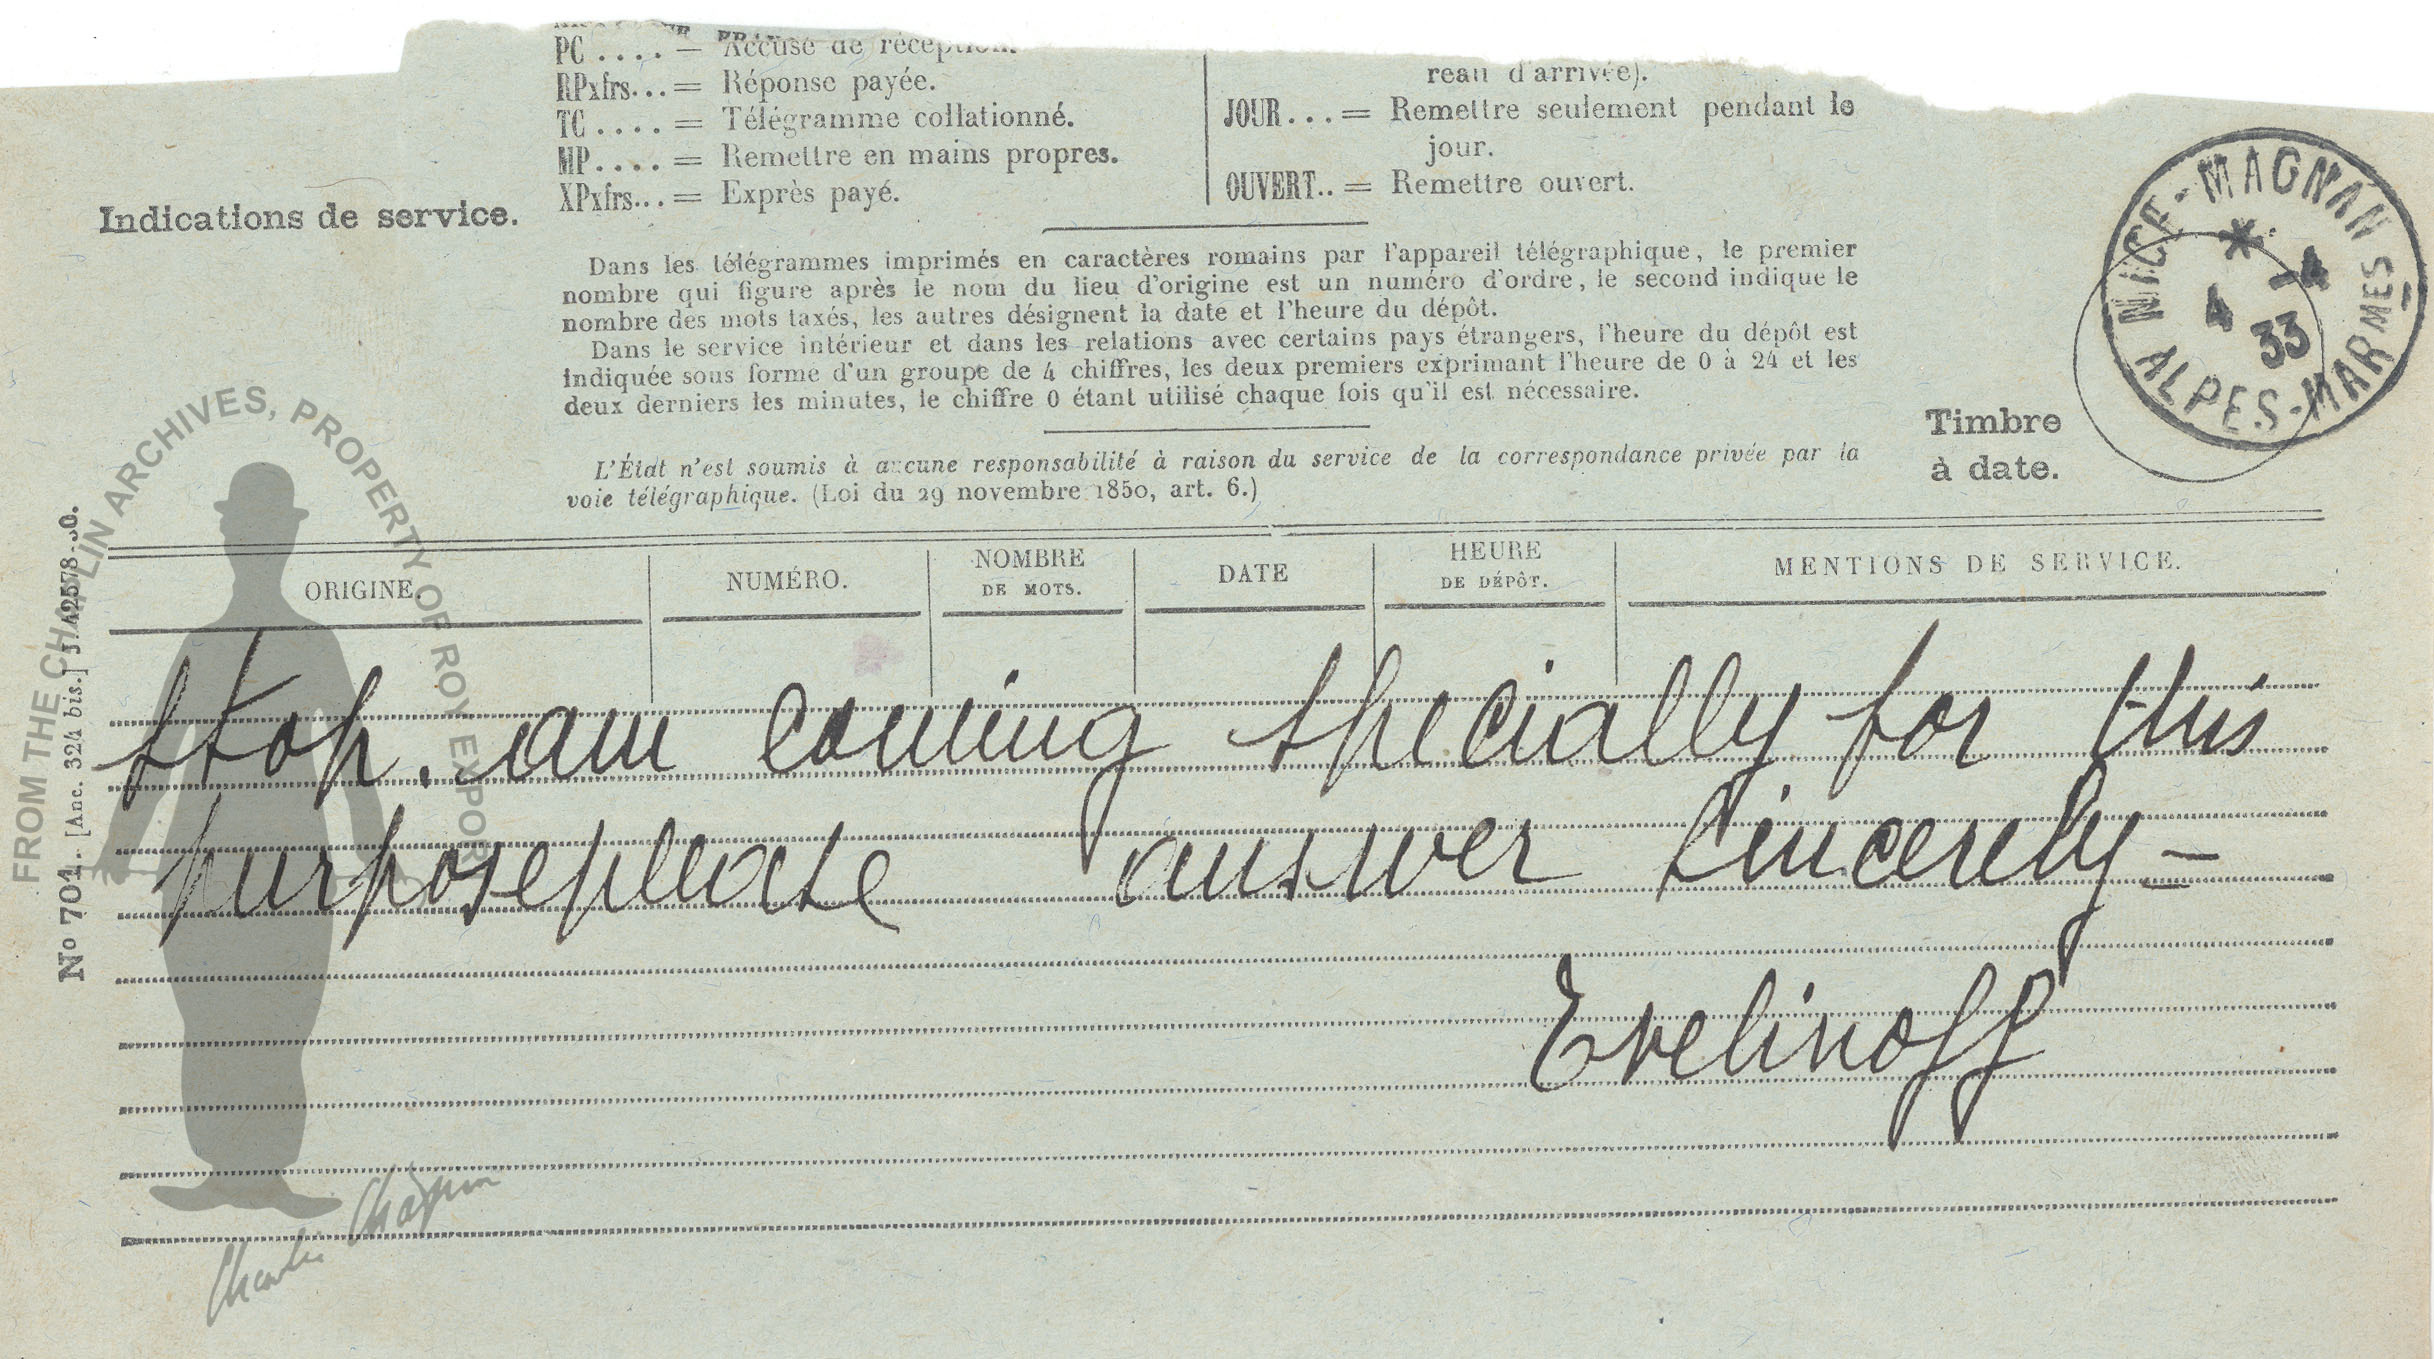 PC .... = Accusé de réception.
RPxfrs... = Réponse payée.
TC .... = Télégramme collationné.
MP.... = Remettre en mains propres.
XPxfrs... = Exprès payé.
reau d'arrivée).
JOUR... = Remettre seulement pendant le
jour.
OUVERT.. = Remettre ouvert.
Indications de service.
Dans les télégrammes imprimés en caractères romains par l'appareil télégraphique, le premier
nombre qui figure après le nom du lieu d'origine est un numéro d'ordre, le second indique le
nombre des mots taxés, les autres désignent la date et l'heure du dépôt.
Dans le service intérieur et dans les relations avec certains pays étrangers, l'heure du dépôt est
indiquée sous forme d'un groupe de 4 chiffres, les deux premiers exprimant l'heure de 0 à 24 et les
deux derniers les minutes, le chiffre 0 étant utilisé chaque fois qu'il est nécessaire.
L'État n'est soumis à aucune responsabilité à raison du service de la correspondance privée par la
voie télégraphique. (Loi du 29 novembre 1850, art. 6.)
Timbre
à date.
NICE-MAGNAN
*
4 -4
33
ALPES-MARMES
ORIGINE.
NUMÉRO.
NOMBRE
DE MOTS.
DATE
HEURE
DE DÉPÔT.
MENTIONS DE SERVICE.
stop. am coming specially for this
purpose please answer sincerely -
Evelinoff
No 701. [Anc. 324 bis.]
FROM THE CHAPLIN ARCHIVES, PROPERTY OF ROY EXPORT
Charles Chaplin